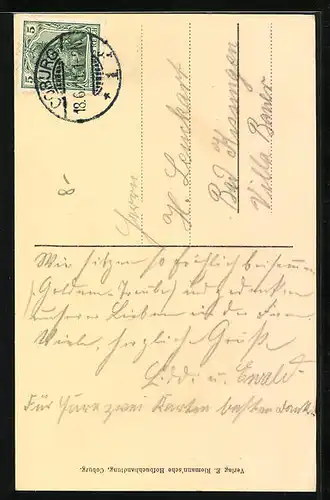 5 5
COBURG
18.6.
Herrn
H. Leuchart
Bad Kissingen
Villa Bauer
8-
Wir sitzen so fröhlich beisammen
(Goldene Traube) und gedenken
unserer Lieben in der Ferne.
Viele herzliche Grüße
Liddi u. Ewald.
Für Eure zwei Karten besten Dank.
Verlag E. Riemann'sche Hofbuchhandlung, Coburg.